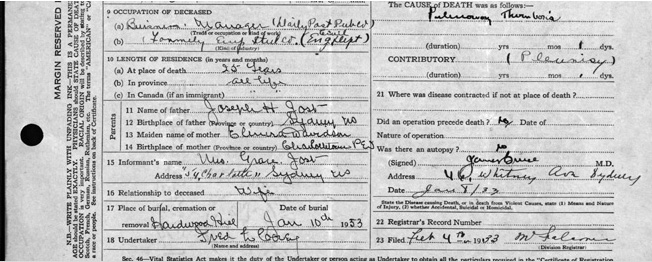 MARGIN RESERVED
N.B.—WRITE PLAINLY WITH UNFADING INK—THIS IS PERMANE
AGE should be stated EXACTLY. PHYSICIANS should state CAUSE OF DEAT
RACIAL ORIGIN
The terms "AMERICAN" or "CA
Scotch, French, German, Russian, Ruthenian, etc.
a race or people. See instructions on back of Certificate.
9 OCCUPATION OF DECEASED
(a) Business Manager (Daily Post Pub Co)
(Trade or occupation or kind of work)
(b) Formerly Emp Steel Co. (Eng Dept)
(Kind of industry)
10 LENGTH OF RESIDENCE (in years and months)
(a) At place of death 25 Years
(b) In province all life
(c) In Canada (if an immigrant)
Parents
11 Name of father Joseph H Jost
12 Birthplace of father (Province or country) Sydney NS
13 Maiden name of mother Elmira Davidson
14 Birthplace of mother (Province or country) Charlottetown PEI
15 Informant's name Mrs. Grace Jost
Address Charlotte Sydney NS
16 Relationship to deceased Wife
17 Place of burial, cremation or Date of burial
removal Hardwood Hill Jan 10th 1933
18 Undertaker Fred L
(Name and address)
The CAUSE OF DEATH was as follows:—
Pulmonary Thrombosis
(duration) yrs mos 1 days.
CONTRIBUTORY (Pleurisy)
(duration) yrs. mos. days.
21 Where was disease contracted if not at place of death?
Did an operation precede death? no Date of
Nature of operation
Was there an autopsy? no
(Signed) James Bruce M.D.
Address Whitney Ave Sydney
Date Jan 8/33
State the Disease causing Death, or in death from Violent Causes, state (1) Means and
Nature of Injury, (2) whether Accidental, Suicidal or Homicidal.
22 Registrar's Record Number
23 Filed Feb 4th 1933
(Division Registrar)
Sec. 46—Vital Statistics Act makes it the duty of the Undertaker or person acting as Undertaker to obtain all the particulars required in the "Certificate of Registration